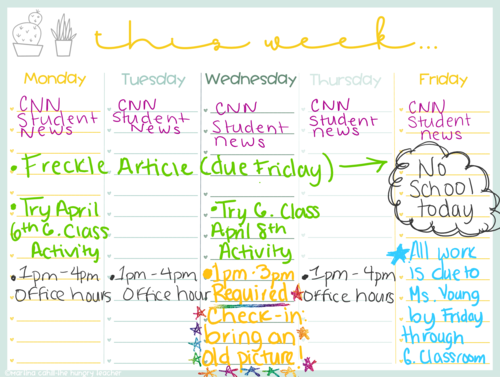 this week...
Monday
CNN
Student
News
Tuesday
CNN
Student
News
Wednesday
CNN
Student
news
Thursday
CNN
Student
news
Friday
CNN
Student
news
• Freckle Article (due Friday)
No
School
today
• Try April
6th G. Class
Activity
• Try G. Class
April 8th
Activity
• 1pm-4pm
Office hours
• 1pm-4pm
Office hour
• 1pm-3pm
Required
Check-in:
bring an
old picture!
• 1pm-4pm
Office hours
All work
is due to
Ms. Young
by Friday
through
G. Classroom